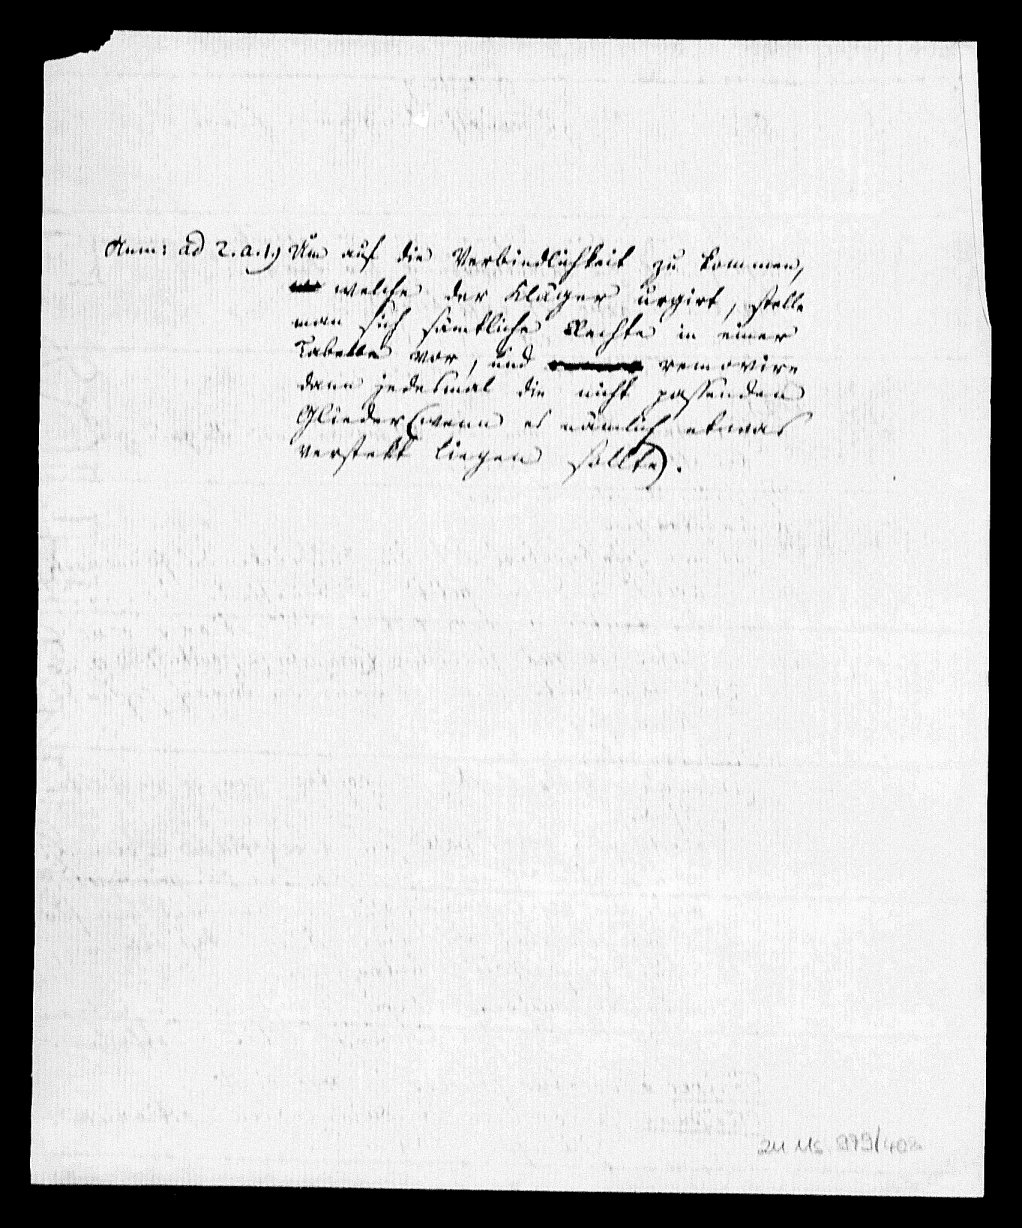 Anm: ad 2.a.1) Um auf die Verbindlichkeit zu kommen,
welche der Kläger urgirt, stelle
man sich sämtliche Rechte in einer
Tabelle vor, und removire
dann jedesmal die nicht passenden
Glieder (wenn es nämlich etwas
verstekt liegen sollte).
zu Ms. 299/402